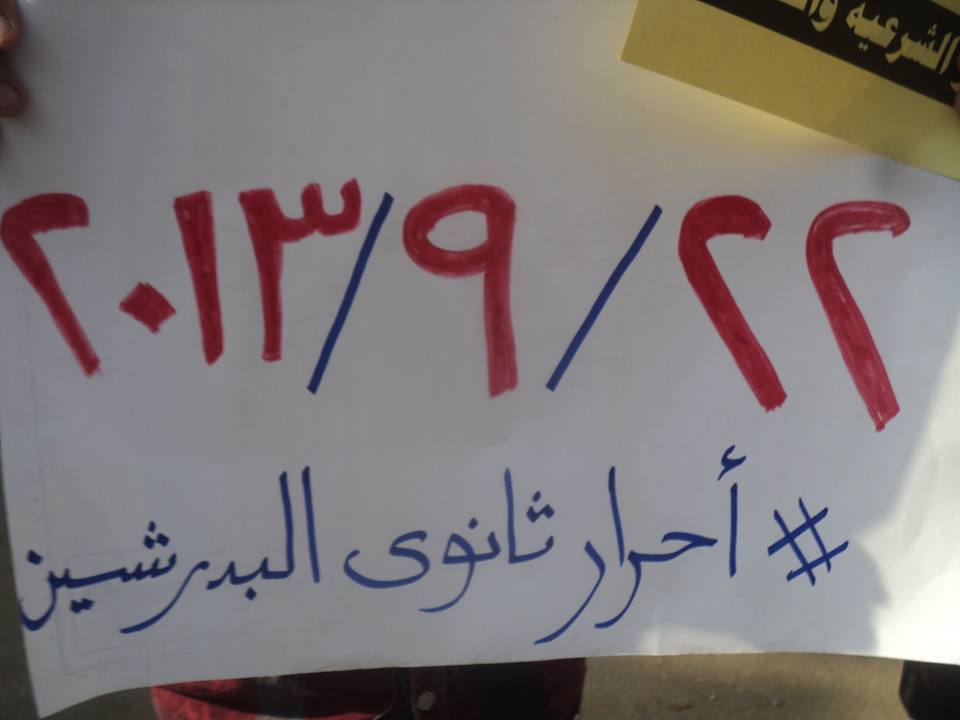 الشرعيه
٢٢/٩/٢٠١٣
#أحرار ثانوى البدرشين